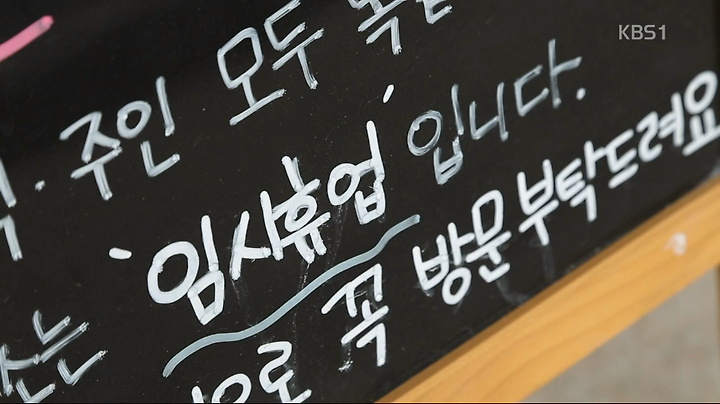 KBS1
주인 모두
'임시휴업' 입니다.
는 으로 꼭 방문부탁드려요